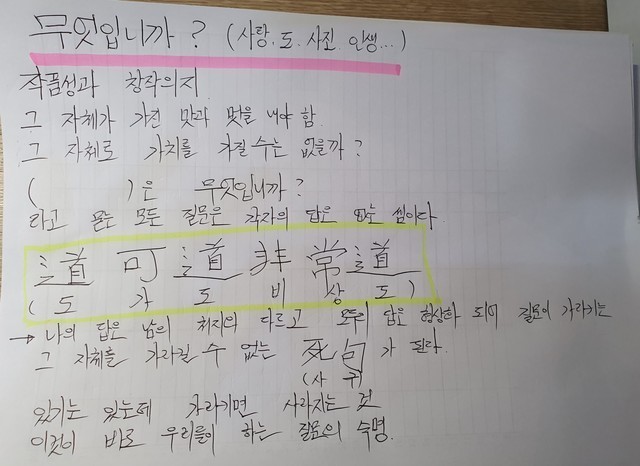 무엇입니까? (사랑, 도, 사진, 인생...)
작품성과 창작의지
그 자체가 가진 맛과 멋을 내야 함.
그 자체로 가치를 가질 수는 없을까?
( )은 무엇입니까?
라고 묻는 모든 질문은 각자의 답은 있는 셈이다
道可道非常道
(도가도비상도)
→ 나의 답은 남의 처지와 다르고 모두의 답은 형상화 되어 질문이 가리키는
그 자체를 가리킬 수 없는 死句가 된다.
(사구)
있기는 있는데 가리키면 사라지는 것
이것이 바로 우리들이 하는 질문의 숙명.